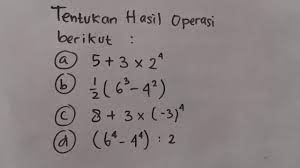 Tentukan Hasil Operasi
berikut :
(a) 5 + 3 × 2⁴
(b) ½ (6³ - 4²)
(c) 8 + 3 × (-3)⁴
(d) (6⁴ - 4⁴) : 2